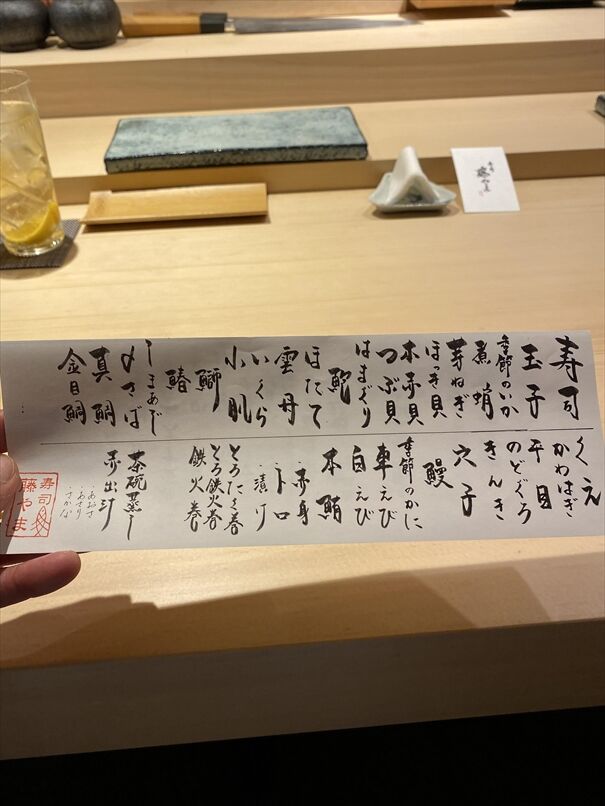 寿司
玉子
季節のいか
煮蛸
芽ねぎ
ほっき貝
本赤貝
つぶ貝
はまぐり
鮑
ほたて
雲丹
いくら
小肌
鰤
鰆
しまあじ
〆さば
真鯛
金目鯛
くえ
かわはぎ
平目
のどぐろ
きんき
穴子
鰻
季節のかに
車えび
白えび
本鮪
・赤身
・トロ
・漬け
とろたく巻
とろ鉄火巻
鉄火巻
茶碗蒸し
赤出汁
・あおさ
・あさり
・さかな
寿司
藤やま